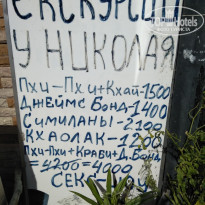 ЕКСКУРСИИ
У НИКОЛАЯ
Пхи-Пхи+Кхай-1500
Джеймс Бонд-1400
Симиланы-2100
Кхаолак-1200
Пхи-Пхи+Краби+Д.Бонд
=4200=4000
TopHotels